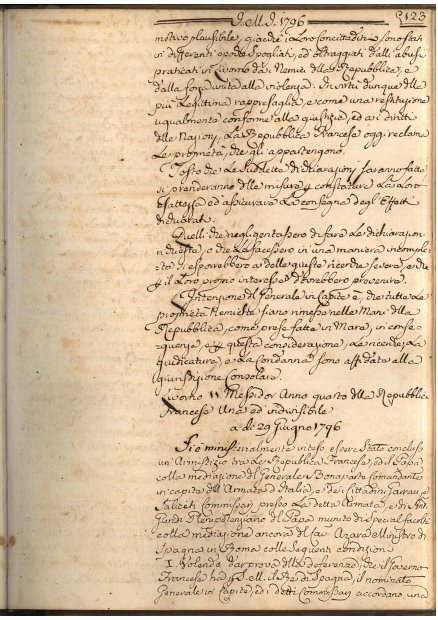 J. M. J. 1796
123
motivo plausibile, giacché i loro Concittadini sono stati
in differenti epoche spogliati, ed oltraggiati dalli abusi
praticati in Livorno da i Nemici della Repubblica, e
dalla forza unita alla violenza. In virtù dunque della
più legittima rappresaglia, e come una restituzione
ugualmente conforme alla giustizia, ed a i diritti
delle Nazioni, La Repubblica Francese oggi reclama
Le proprietà, che gli appartengono.
Tosto che Le suddette dichiarazioni saranno fatte
si prenderanno delle misure p constatare La Loro
esattezza ed assicurare La consegna degl' Effetti
dichiarati.
Quelli che negligentassero di fare Le dichiarazioni
richieste, o che La facessero in una maniera incomple
ta si esporrebbero a delle giuste ricerche severe, e che
p il Loro proprio interesse dovrebbero prevenire.
L'Intenzione del Generale in Capite è, che tutte Le
proprietà Nemiche siano rimesse nelle Mani della
Repubblica, come prese fatte in Mare, in conse
guenza, e p questa considerazione, Le ricerche, La
giudicatura, e La Condanna sono affidate alla
giurisdizione Consolare.
Livorno 11. Messidor Anno quarto della Repubblica
Francese Una ed indivisibile
a dì 29 Giugno 1796
Si è ministerialmente inteso essere stato concluso
un Armistizio tra La Repubblica Francese, ed il Papa
colla mediazione del Generale Bonaparte Comandante
in capite dell' Armata d'Italia, e dei Cittadini Garrau, e
Saliceti Commissarj presso La detta Armata, e di Ant.
Gnudi Plenipotenziario del Papa munito di special facoltà
colla mediazione ancora del Cav. Azara Ministro di
Spagna in Roma colle seguenti condizioni
I. Volendo dar prova della deferenza, che il Governo
Francese ha p S. M. il Re di Spagna, il nominato
Generale in Capite, ed i detti Commissarj accordano una